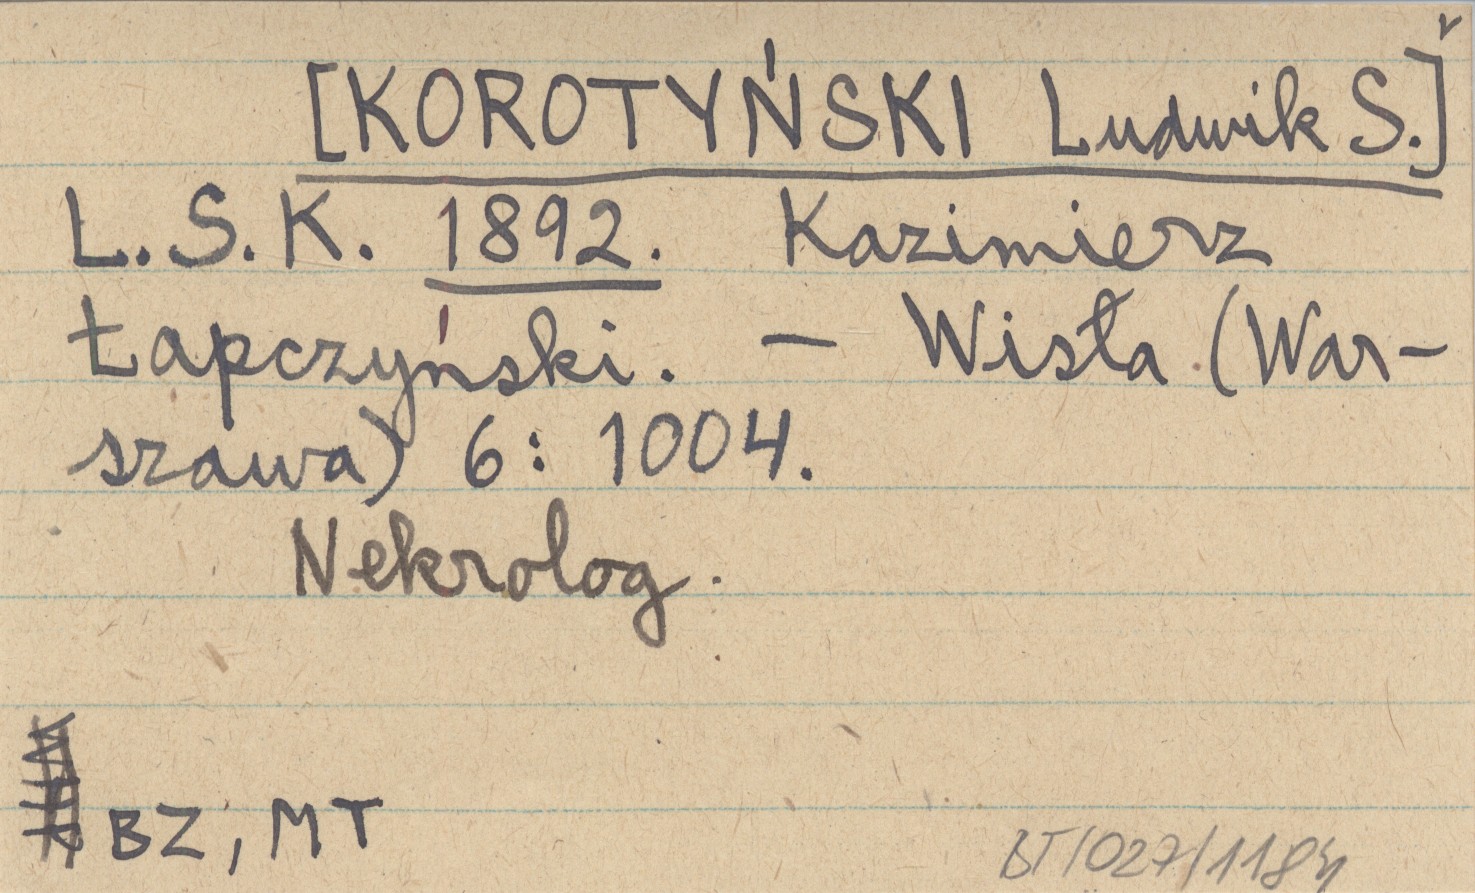 [KOROTYŃSKI Ludwik S.]
L. S. K. 1892. Kazimierz
Łapczyński. – Wisła (War-
szawa) 6: 1004.
Nekrolog.
BZ, MT